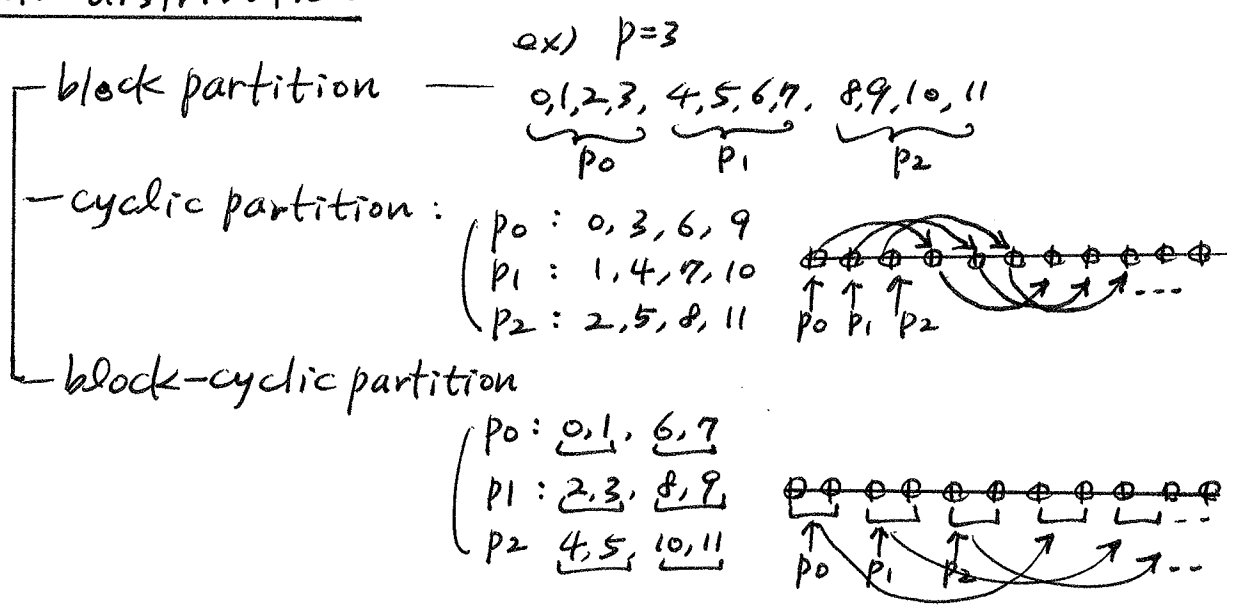 ex) p=3
block partition — 0,1,2,3, 4,5,6,7, 8,9,10,11
p0 p1 p2
cyclic partition :
p0 : 0, 3, 6, 9
p1 : 1, 4, 7, 10
p2 : 2, 5, 8, 11
p0 p1 p2 ...
block-cyclic partition
p0 : 0,1, 6,7
p1 : 2,3, 8,9,
p2 4,5, 10,11
p0 p1 p2 ...